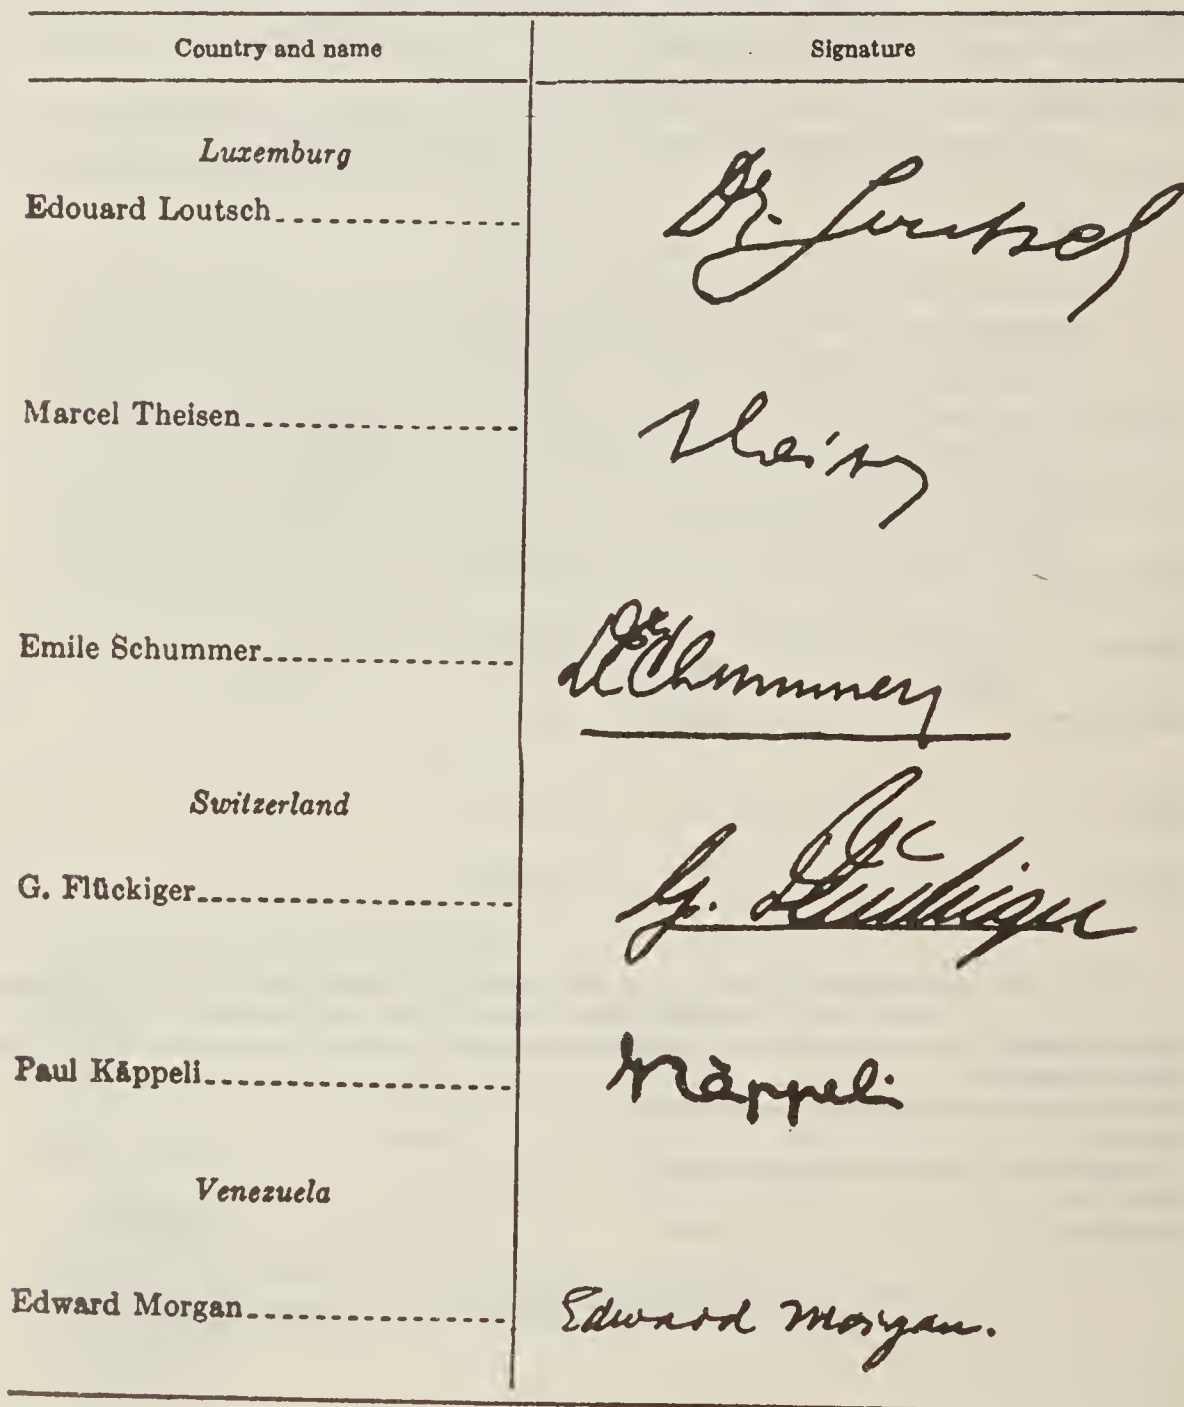 Country and name Signature
Luxemburg
Edouard Loutsch Dr. Loutsch
Marcel Theisen Theisen
Emile Schummer Dr Schummer
Switzerland
G. Flückiger G. Flückiger
Paul Käppeli Käppeli
Venezuela
Edward Morgan Edward Morgan.